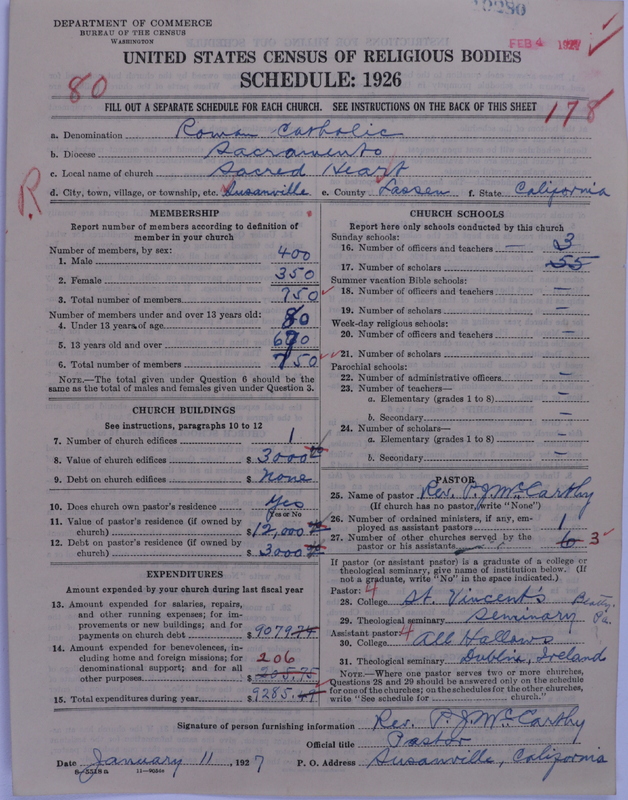 DEPARTMENT OF COMMERCE
BUREAU OF THE CENSUS
WASHINGTON
FEB 4 1927
UNITED STATES CENSUS OF RELIGIOUS BODIES
SCHEDULE: 1926
80
178
FILL OUT A SEPARATE SCHEDULE FOR EACH CHURCH. SEE INSTRUCTIONS ON THE BACK OF THIS SHEET
a. Denomination Roman Catholic
b. Diocese Sacramento
c. Local name of church Sacred Heart
R
d. City, town, village, or township, etc. Susanville e. County Lassen f. State California
MEMBERSHIP
Report number of members according to definition of member in your church
Number of members, by sex:
1. Male 400
2. Female 350
3. Total number of members 750
Number of members under and over 13 years old:
4. Under 13 years of age 80
5. 13 years old and over 670
6. Total number of members 750
NOTE.—The total given under Question 6 should be the
same as the total of males and females given under Question 3.
CHURCH BUILDINGS
See instructions, paragraphs 10 to 12
7. Number of church edifices 1
8. Value of church edifices $ 3000
9. Debt on church edifices $ None
10. Does church own pastor's residence? Yes
Yes or No
11. Value of pastor's residence (if owned by
church) $ 12,000
12. Debt on pastor's residence (if owned by
church) $ 3000
EXPENDITURES
Amount expended by your church during last fiscal year
13. Amount expended for salaries, repairs,
and other running expenses; for im-
provements or new buildings; and for
payments on church debt $ 9079.74
14. Amount expended for benevolences, in-
cluding home and foreign missions; for
denominational support; and for all
other purposes $ 205.75
206
15. Total expenditures during year $ 9285.
CHURCH SCHOOLS
Report here only schools conducted by this church
Sunday schools:
16. Number of officers and teachers — 3
17. Number of scholars 55
Summer vacation Bible schools:
18. Number of officers and teachers —
19. Number of scholars —
Week-day religious schools:
20. Number of officers and teachers —
21. Number of scholars —
Parochial schools:
22. Number of administrative officers —
23. Number of teachers—
a. Elementary (grades 1 to 8) —
b. Secondary —
24. Number of scholars—
a. Elementary (grades 1 to 8) —
b. Secondary —
PASTOR
25. Name of pastor Rev. P. J. McCarthy
(If church has no pastor, write "None")
26. Number of ordained ministers, if any, em-
ployed as assistant pastors 1
27. Number of other churches served by the
pastor or his assistants 6 3
If pastor (or assistant pastor) is a graduate of a college or
theological seminary, give name of institution below. (If
not a graduate, write "No" in the space indicated.)
Pastor: 4
28. College St. Vincent's Beatty Pa.
29. Theological seminary Seminary
Assistant pastor: 4
30. College All Hallows
31. Theological seminary Dublin, Ireland
NOTE.—Where one pastor serves two or more churches,
Questions 28 and 29 should be answered only on the schedule
for one of the churches; on the schedules for the other churches,
write "See schedule for ______ church."
Signature of person furnishing information Rev. P. J. McCarthy
Official title Pastor
Date January 11, 1927 P. O. Address Susanville, California
8—5518a 11—9051